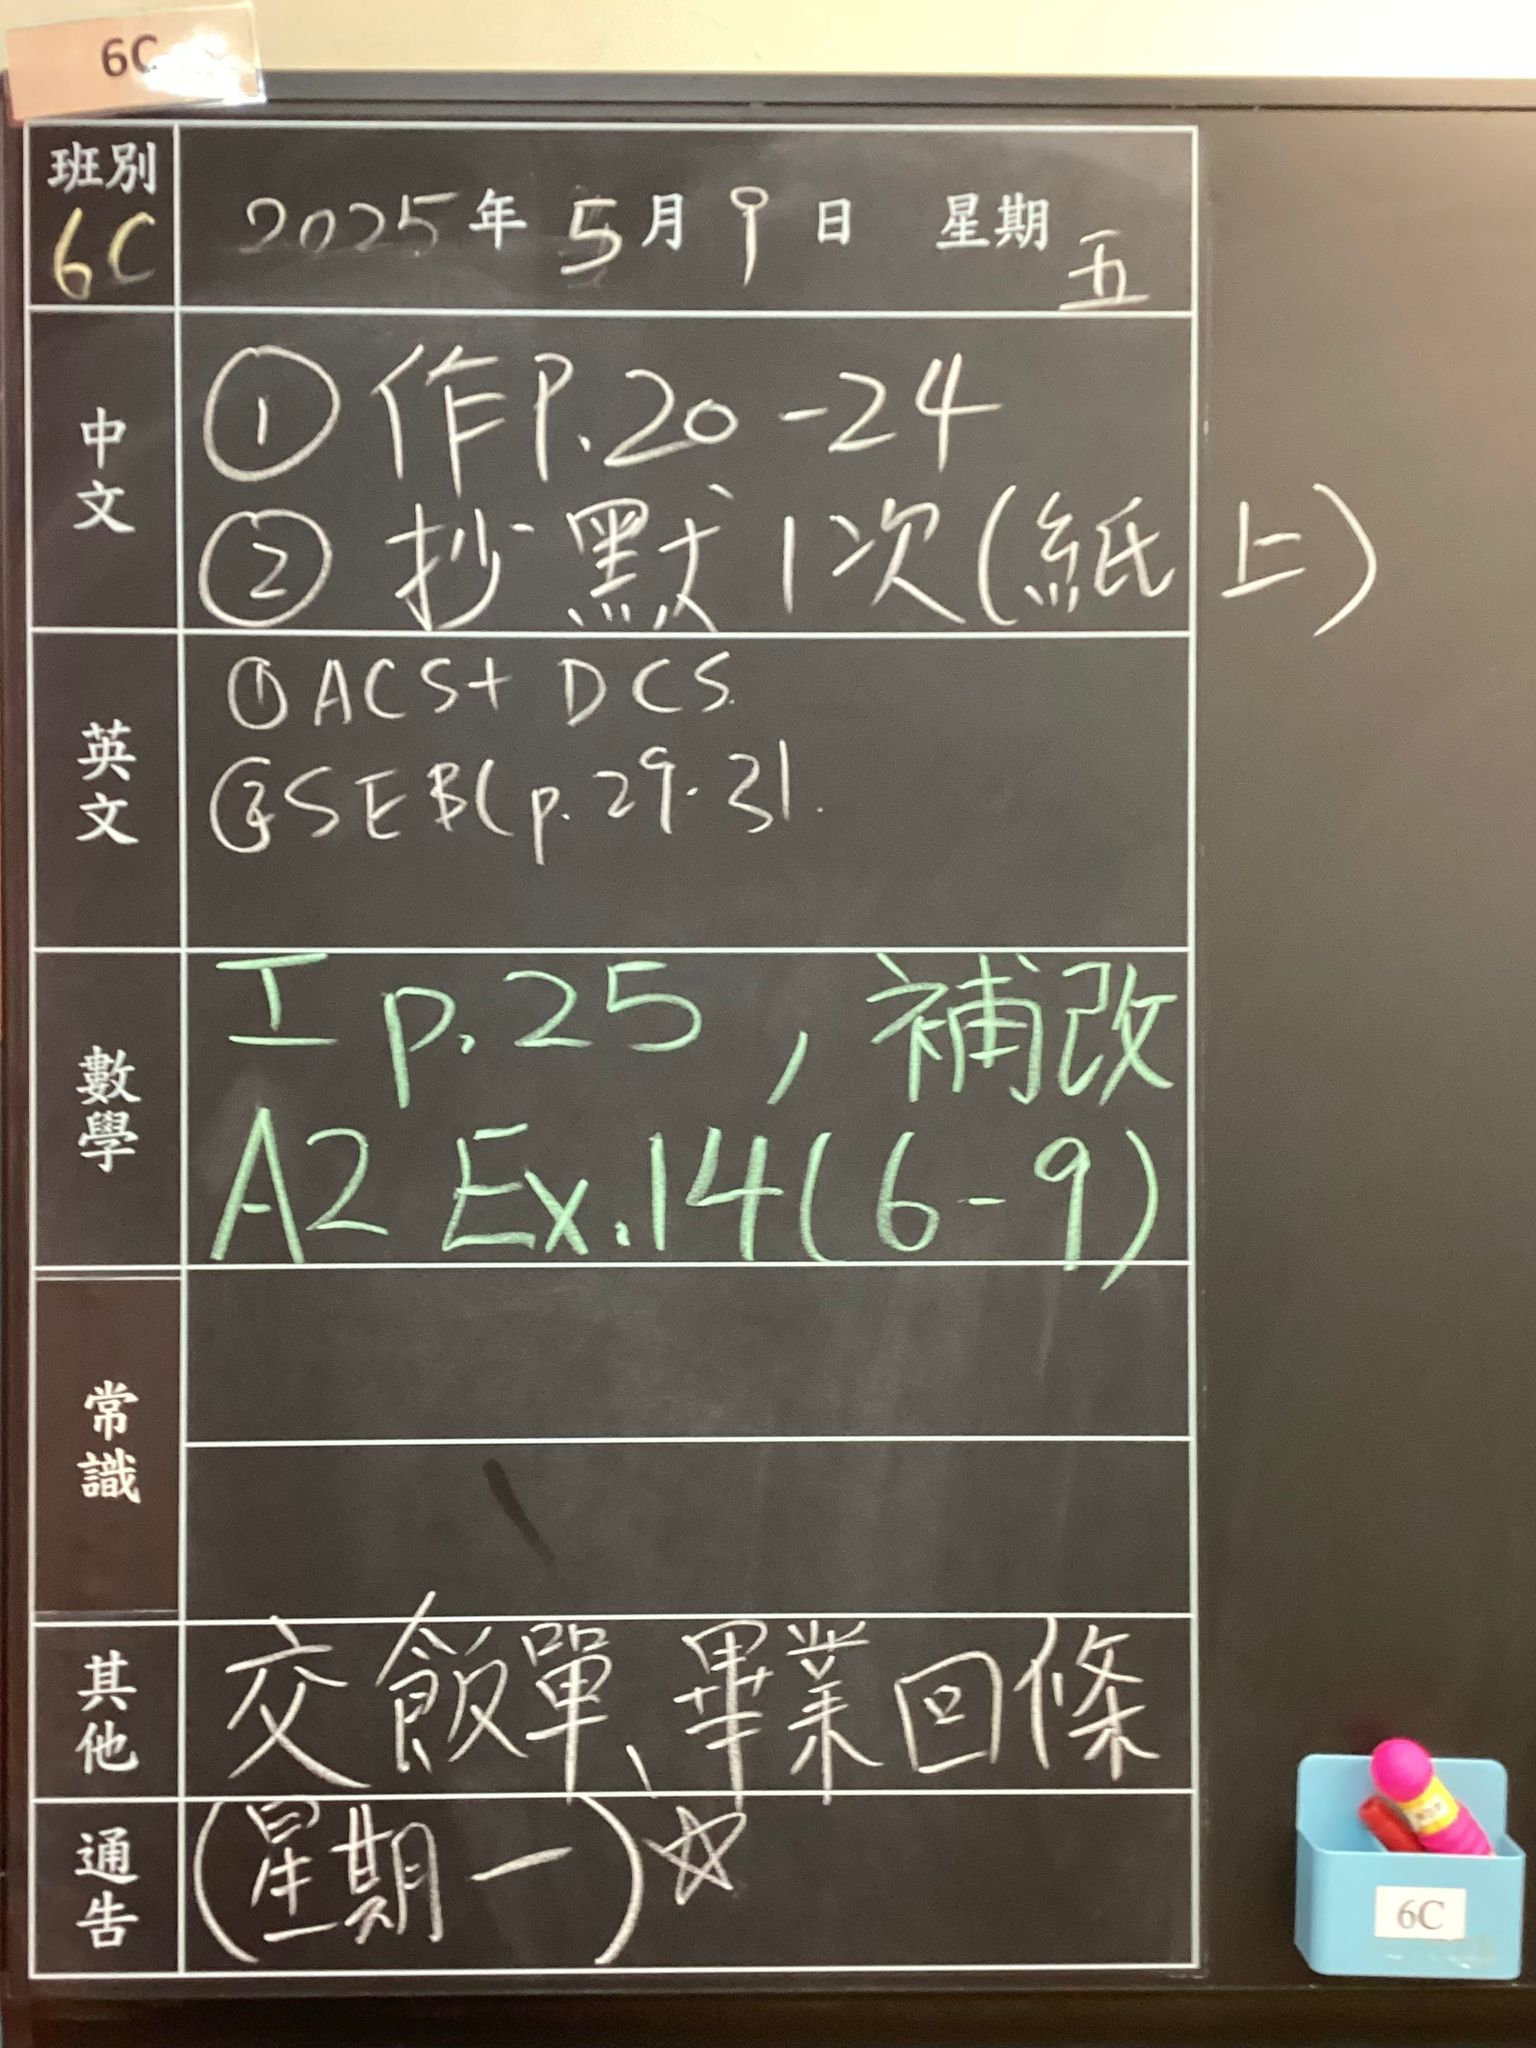 6C
班別
6C
2025年5月9日 星期五
中文
① 作P.20-24
② 抄默1次(紙上)
英文
① ACS+ DCS.
② SEB(p.29-31.
數學
工 p.25, 補改
A2 Ex.14(6-9)
常識
其他
交飯單、畢業回條
通告
(星期一)☆
6C